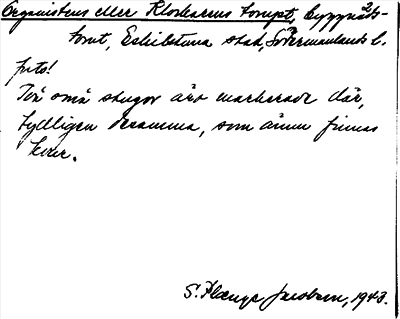 Organistens eller Klockarens tompt, byggnads-
tomt, Eskilstuna stad, Södermanlands l.
Två små stugor äro markerade där,
tydligen desamma, som ännu finnas
kvar.
S. Jacobson, 1943.